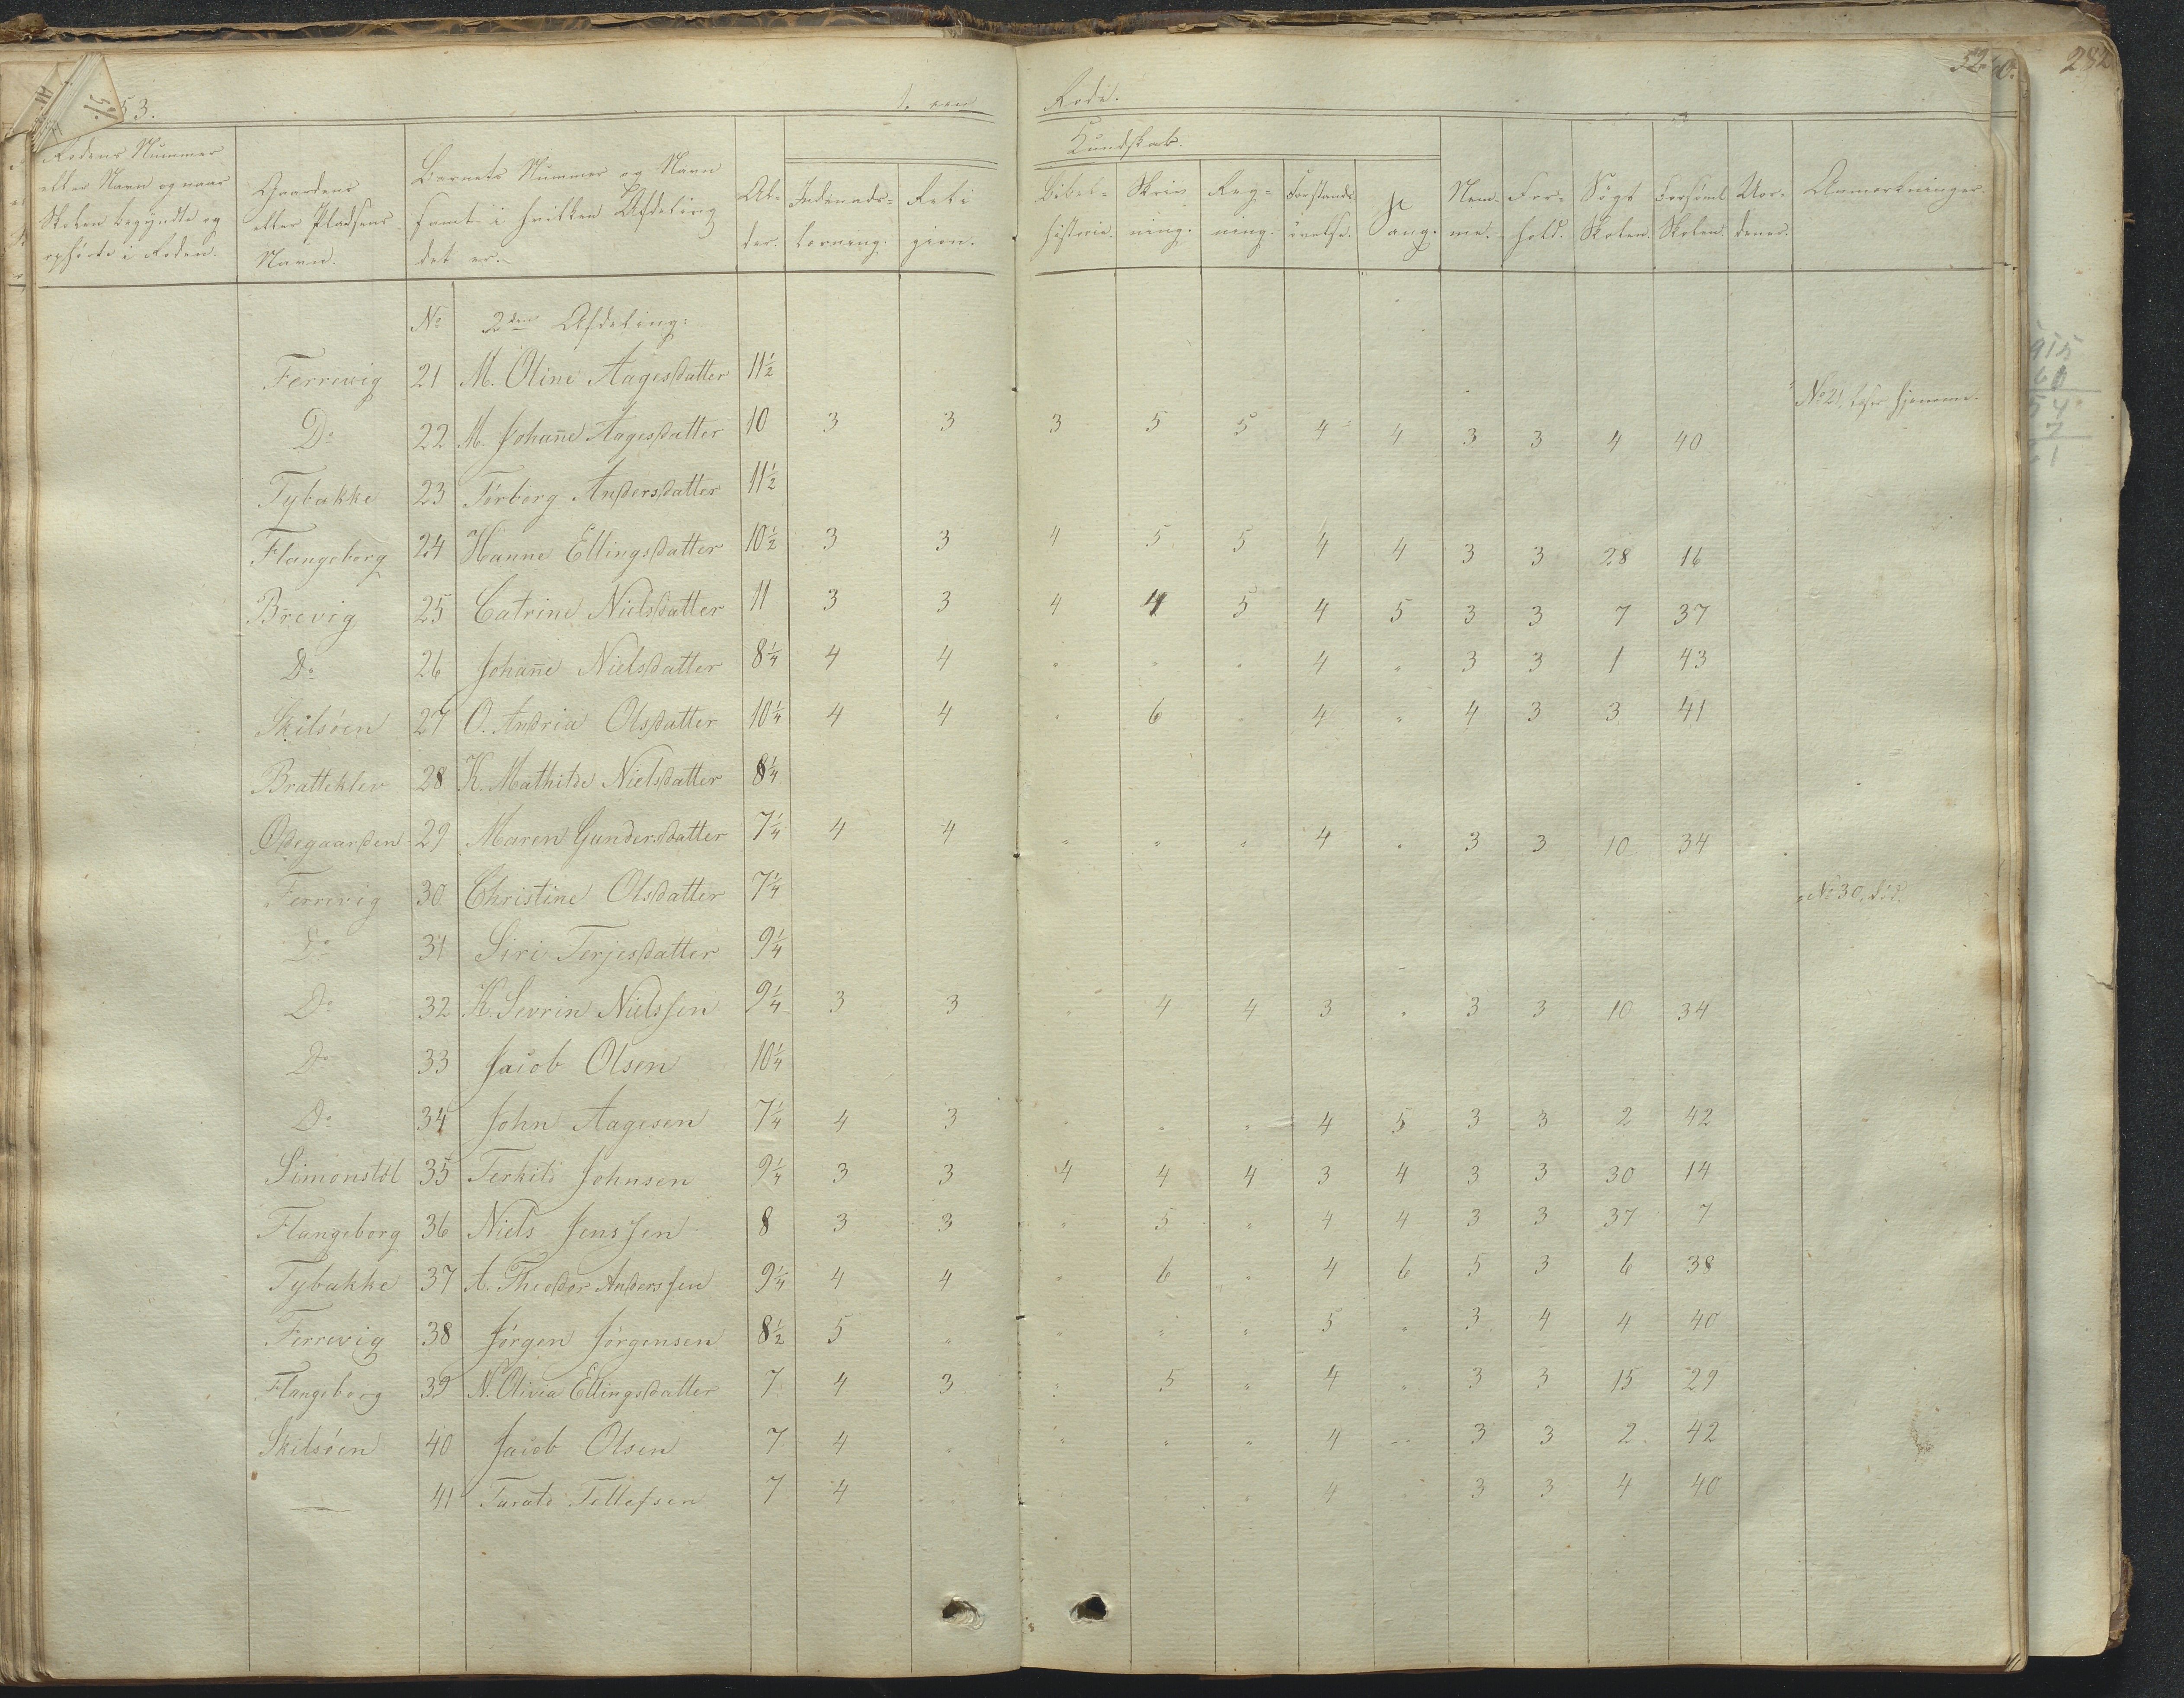 53.
Rode.
282
Rodens Nummer eller Navn og naar Skolen begyndte og ophørte i Roden.
Gaardens eller Pladsens Navn.
Barnets Nummer og Navn samt i hvilken Afdeling det er.
Alder.
Indenadslæsning.
Religion.
Kundskab.
Bibelhistorie.
Skrivning.
Regning.
Forstandsøvelse.
Sang.
Nemme.
Forhold.
Søgt Skolen.
Forsømt Skolen.
Uordener.
Anmærkninger.
No 2den Afdeling:
Ferrevig 21 M. Oline Aagesdatter 11½ No 21, læser hjemme.
Do 22 M. Johan̄e Aagesdatter 10 3 3 3 5 5 4 4 3 3 4 40
Tybakke 23 Torborg Andersdatter 11½
Flangeborg 24 Hanne Ellingsdatter 10½ 3 3 4 5 5 4 4 3 3 28 16
Brevig 25 Catrine Nielsdatter 11 3 3 4 4 5 4 5 3 3 7 37
Do 26 Johan̄e Nielsdatter 8¼ 4 4 " " " 4 " 3 3 1 43
Skilsøen 27 O. Andria Olsdatter 10¼ 4 4 " 6 " 4 " 4 3 3 41
Bratteklev 28 K. Mathilde Nielsdatter 8¼
Ødegaarden 29 Maren Gundersdatter 7¼ 4 4 " " " 4 " 3 3 10 34
Ferrevig 30 Christine Olsdatter 7¼ No 30, død.
Do 31 Siri Terjesdatter 9¼
Do 32 K. Sevrin Nielssen 9¼ 3 3 " 4 4 3 " 3 3 10 34
Do 33 Jacob Olsen 10¼
Do 34 John Aagesen 7¼ 4 3 " " " 4 5 3 3 2 42
Simonstøl 35 Terkild Johnsen 9¼ 3 3 4 4 4 3 4 3 3 30 14
Flangeborg 36 Niels Jenssen 8 3 3 " 5 " 4 4 3 3 37 7
Tybakke 37 A. Theodor Anderssen 9¼ 4 4 " 6 " 4 6 5 3 6 38
Ferrevig 38 Jørgen Jørgensen 8½ 5 " " " " 5 " 3 4 4 40
Flangeborg 39 N. Olivia Ellingsdatter 7 4 3 " 5 " 4 " 3 3 15 29
Skilsøen 40 Jacob Olsen 7 4 " " " " 4 " 3 3 2 42
— 41 Tarald Tellefsen 7 4 " " " " 4 " 3 3 4 40